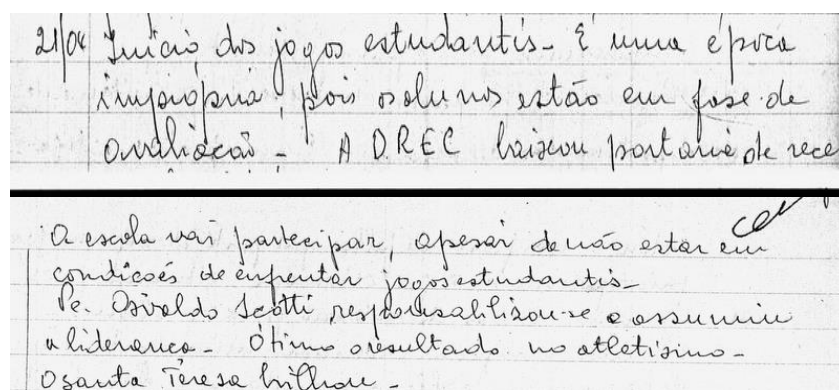 21/04 Início dos jogos estudantis - É uma época
imprópria, pois os alunos estão em fase de
avaliação - A DREC baixou portaria de rece
A escola vai participar, apesar de não estar em
condições de enfrentar jogos estudantis -
Pe. Osvaldo Scotti responsabilizou-se e assumiu
a liderança - Ótimo o resultado no atletismo -
O Santa Teresa brilhou -